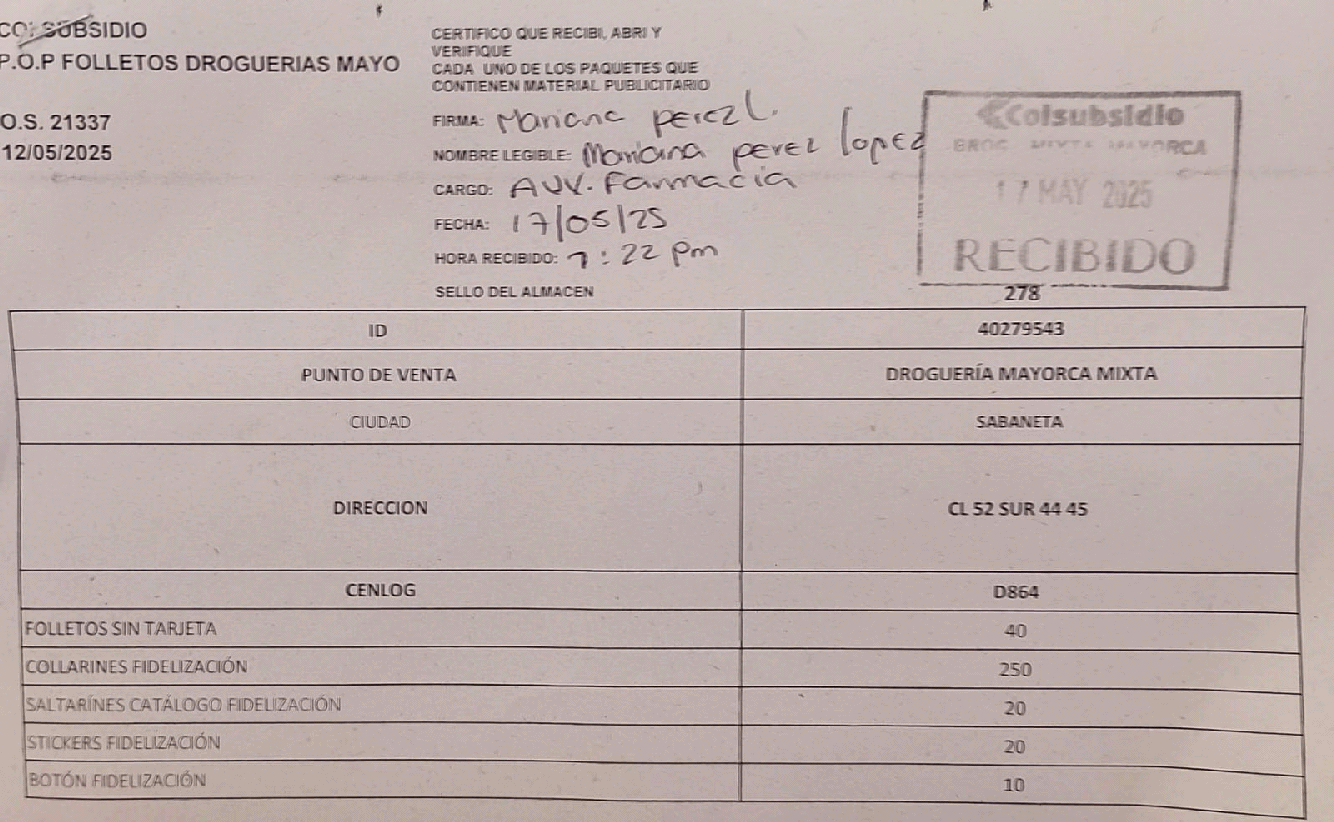 COLSUBSIDIO
P.O.P FOLLETOS DROGUERIAS MAYO
O.S. 21337
12/05/2025
CERTIFICO QUE RECIBI, ABRI Y
VERIFIQUE
CADA UNO DE LOS PAQUETES QUE
CONTIENEN MATERIAL PUBLICITARIO
FIRMA: Mariana perez L.
NOMBRE LEGIBLE: Mariana perez lopez
CARGO: AUX. Farmacia
FECHA: 17/05/25
HORA RECIBIDO: 7:22 pm
SELLO DEL ALMACEN
Colsubsidio
DROG MIXTA MAYORCA
17 MAY 2025
RECIBIDO
278
ID 40279543
PUNTO DE VENTA DROGUERÍA MAYORCA MIXTA
CIUDAD SABANETA
DIRECCION CL 52 SUR 44 45
CENLOG D864
FOLLETOS SIN TARJETA 40
COLLARINES FIDELIZACIÓN 250
SALTARÍNES CATÁLOGO FIDELIZACIÓN 20
STICKERS FIDELIZACIÓN 20
BOTÓN FIDELIZACIÓN 10